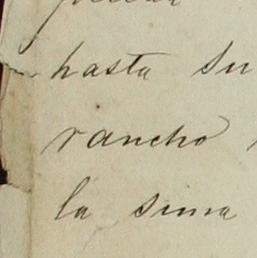 hasta su
rancho
la sima